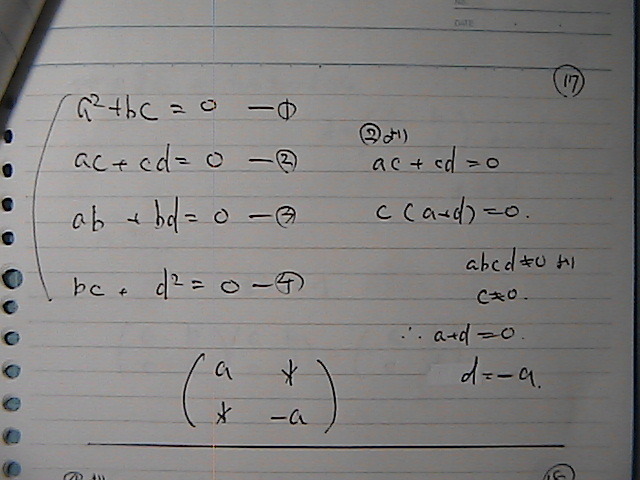 NO.
DATE
⑰
a²+bc = 0 —①
ac + cd = 0 —②
ab + bd = 0 —③
bc + d² = 0 —④
②より
ac + cd = 0
c (a+d) = 0.
abcd≠0 より
c≠0.
∴ a+d = 0.
d = -a.
( a *
* -a )